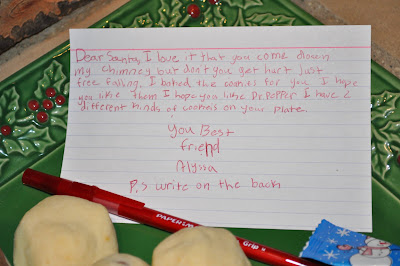 Dear Santa, I love it that you come down
my chimney but don't you get hurt just
free falling. I baked this cookies for you. I hope
you like them I hope you like Dr Pepper I have 2
different kinds of cookeis on your plate.
You Best
friend
Alyssa
P.s write on the back
PAPERM
Grip